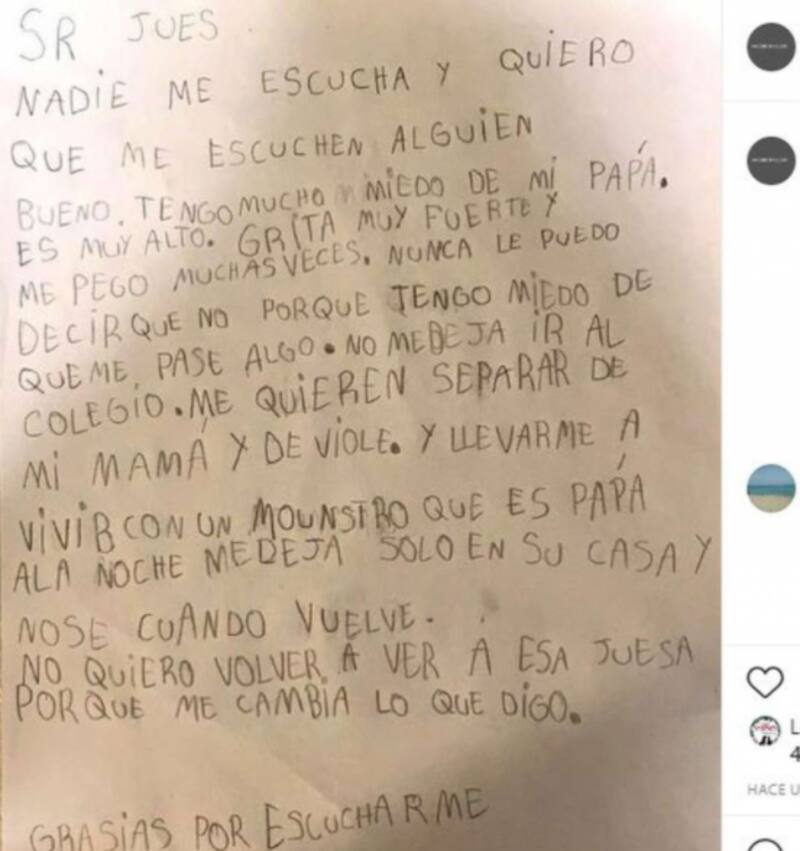 SR JUES
NADIE ME ESCUCHA Y QUIERO
QUE ME ESCUCHEN ALGUIEN
BUENO. TENGO MUCHO MIEDO DE MI PAPÁ.
ES MUY ALTO. GRITA MUY FUERTE Y
ME PEGO MUCHAS VECES. NUNCA LE PUEDO
DECIR QUE NO PORQUE TENGO MIEDO DE
QUE ME PASE ALGO. NO ME DEJA IR AL
COLEGIO. ME QUIEREN SEPARAR DE
MI MAMÁ Y DE VIOLE. Y LLEVARME A
VIVIB CON UN MOUNSTRO QUE ES PAPÁ
ALA NOCHE ME DEJA SOLO EN SU CASA Y
NOSE CUANDO VUELVE.
NO QUIERO VOLVER A VER A ESA JUESA
PORQUE ME CAMBIA LO QUE DIGO.
GRASIAS POR ESCUCHARME
L
4
HACE U